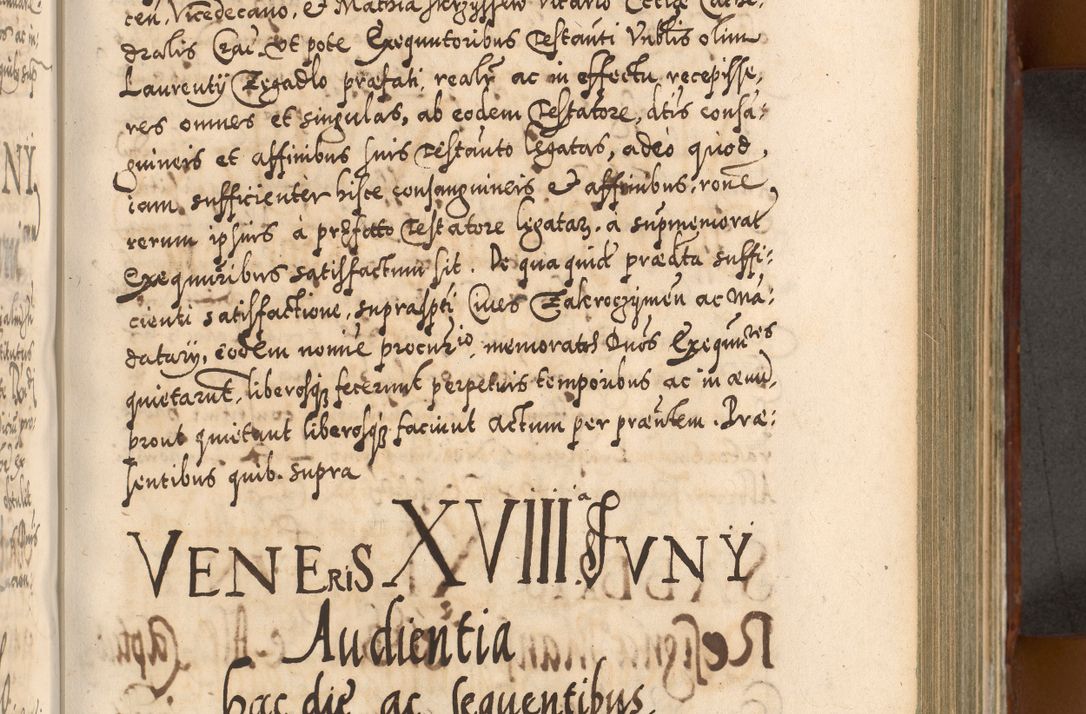 cen, Vicedecano, et Mathia
dralis Crac. vt pote Exequutoribus Testanti Vnblis olim
Laurentij Zegadlo præfati, realr ac in effectu recepisse,
res omnes et singulas, ab eodem Testatore, dtis consa-
guineis et affinibus suis Testanto legatas, adeo quod
iam sufficienter hisce consanguineis et affinibus, rone
rerum ipsius à præfatto Testatore legataz. à supmemorat
Exequutoribus satisfactum sit. De qua quid prædta suffi-
cienti satisfactione, suprasspti Cives Zakroczymen ac Ma-
datary, eodem nomine procurio, memoratos Duos Exequutores
quietarunt, liberosq; fecerunt perpetuis temporibus ac in ævu,
prout quietant liberosq; faciunt actum per præntem. Præ-
sentibus quib. supra
VENERIS XVIIII.a IVNY
Audientia
hac die ac sequentibus